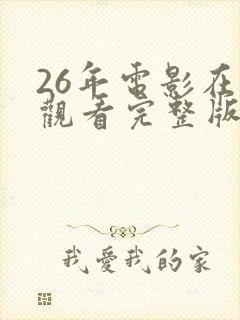 26年電影在
觀看完整版
我愛我的家